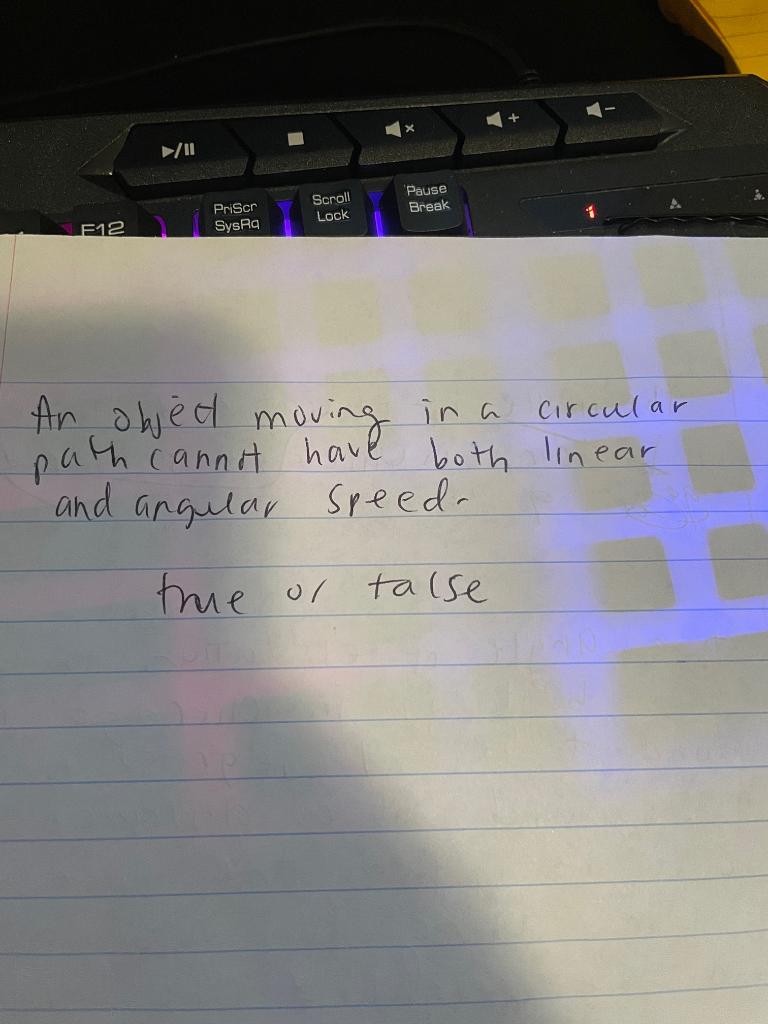 F12
PriScr
SysRq
Scroll
Lock
Pause
Break
An object moving in a circular
path cannot have both linear
and angular speed.
true or false